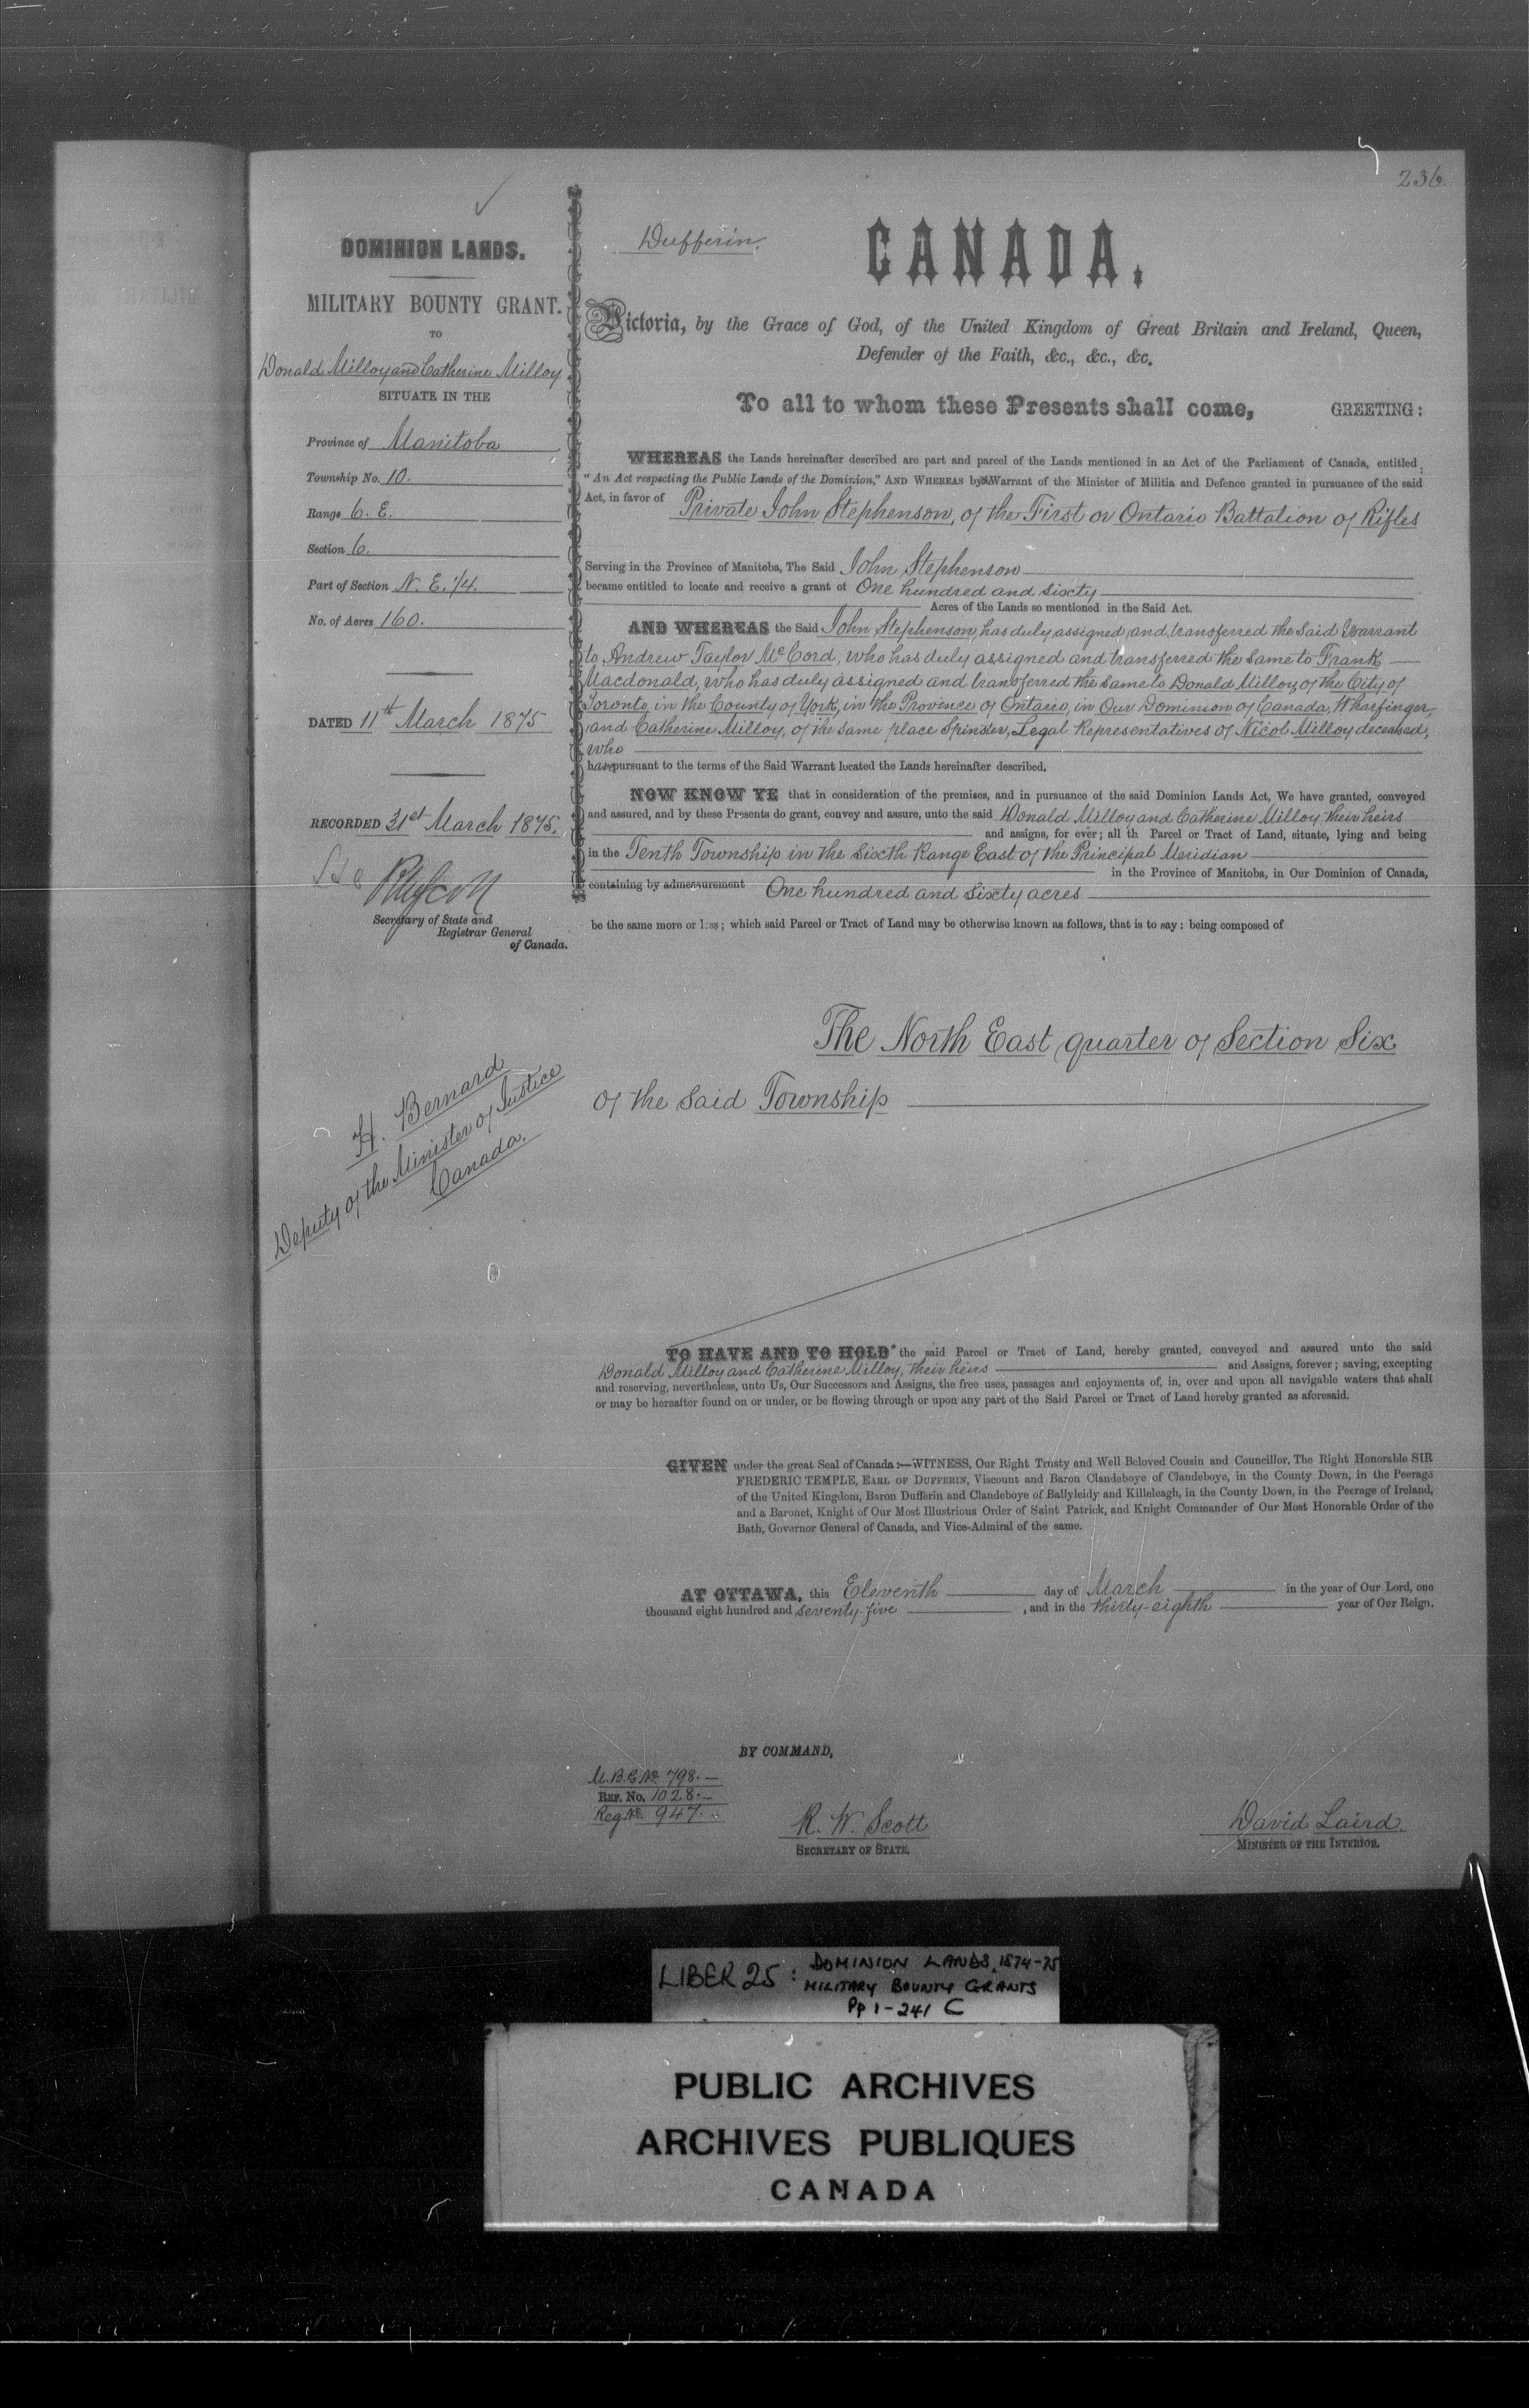 236.
DOMINION LANDS.
MILITARY BOUNTY GRANT.
TO
Donald Milloy and Catherine Milloy
SITUATE IN THE
Province of Manitoba
Township No. 10.
Range 6. E.
Section 6.
Part of Section N. E. 1/4.
No. of Acres 160.
DATED 11th March 1875
RECORDED 31st March 1875.
Secretary of State and
Registrar General
of Canada.
H. Bernard
Deputy of the Minister of Justice
Canada.
Dufferin.
CANADA.
Victoria, by the Grace of God, of the United Kingdom of Great Britain and Ireland, Queen,
Defender of the Faith, &c., &c., &c.
To all to whom these Presents shall come, GREETING:
WHEREAS the Lands hereinafter described are part and parcel of the Lands mentioned in an Act of the Parliament of Canada, entitled
"An Act respecting the Public Lands of the Dominion," AND WHEREAS by Warrant of the Minister of Militia and Defence granted in pursuance of the said
Act, in favor of Private John Stephenson, of the First or Ontario Battalion of Rifles
Serving in the Province of Manitoba, The Said John Stephenson
became entitled to locate and receive a grant of One hundred and sixty
Acres of the Lands so mentioned in the Said Act.
AND WHEREAS the Said John Stephenson, has duly assigned and transferred the said Warrant
to Andrew Taylor McCord, who has duly assigned and transferred the same to Frank
Macdonald, who has duly assigned and transferred the same to Donald Milloy, of the City of
Toronto, in the County of York, in the Province of Ontario, in Our Dominion of Canada, Wharfinger,
and Catherine Milloy, of the same place Spinster, Legal Representatives of Nicol Milloy deceased,
who
have pursuant to the terms of the Said Warrant located the Lands hereinafter described.
NOW KNOW YE that in consideration of the premises, and in pursuance of the said Dominion Lands Act, We have granted, conveyed
and assured, and by these Presents do grant, convey and assure, unto the said Donald Milloy and Catherine Milloy, their heirs
and assigns, for ever; all th Parcel or Tract of Land, situate, lying and being
in the Tenth Township in the Sixth Range East of the Principal Meridian
in the Province of Manitoba, in Our Dominion of Canada,
containing by admeasurement One hundred and Sixty acres
be the same more or less; which said Parcel or Tract of Land may be otherwise known as follows, that is to say: being composed of
The North East quarter of Section Six
of the said Township
TO HAVE AND TO HOLD the said Parcel or Tract of Land, hereby granted, conveyed and assured unto the said
Donald Milloy and Catherine Milloy, their heirs and Assigns, forever; saving, excepting
and reserving, nevertheless, unto Us, Our Successors and Assigns, the free uses, passages and enjoyments of, in, over and upon all navigable waters that shall
or may be hereafter found on or under, or be flowing through or upon any part of the Said Parcel or Tract of Land hereby granted as aforesaid.
GIVEN under the great Seal of Canada:—WITNESS, Our Right Trusty and Well Beloved Cousin and Councillor, The Right Honorable SIR
FREDERIC TEMPLE, EARL OF DUFFERIN, Viscount and Baron Clandeboye of Clandeboye, in the County Down, in the Peerage
of the United Kingdom, Baron Dufferin and Clandeboye of Ballyleidy and Killeleagh, in the County Down, in the Peerage of Ireland,
and a Baronet, Knight of Our Most Illustrious Order of Saint Patrick, and Knight Commander of Our Most Honorable Order of the
Bath, Governor General of Canada, and Vice-Admiral of the same.
AT OTTAWA, this Eleventh day of March in the year of Our Lord, one
thousand eight hundred and seventy-five, and in the thirty-eighth year of Our Reign.
BY COMMAND,
M.B.G. No. 798.
REF. No. 1028.
Reg No. 947.
R. W. Scott
SECRETARY OF STATE.
David Laird.
MINISTER OF THE INTERIOR.
LIBER 25: DOMINION LANDS, 1874-75
MILITARY BOUNTY GRANTS
Pp 1-241 C
PUBLIC ARCHIVES
ARCHIVES PUBLIQUES
CANADA